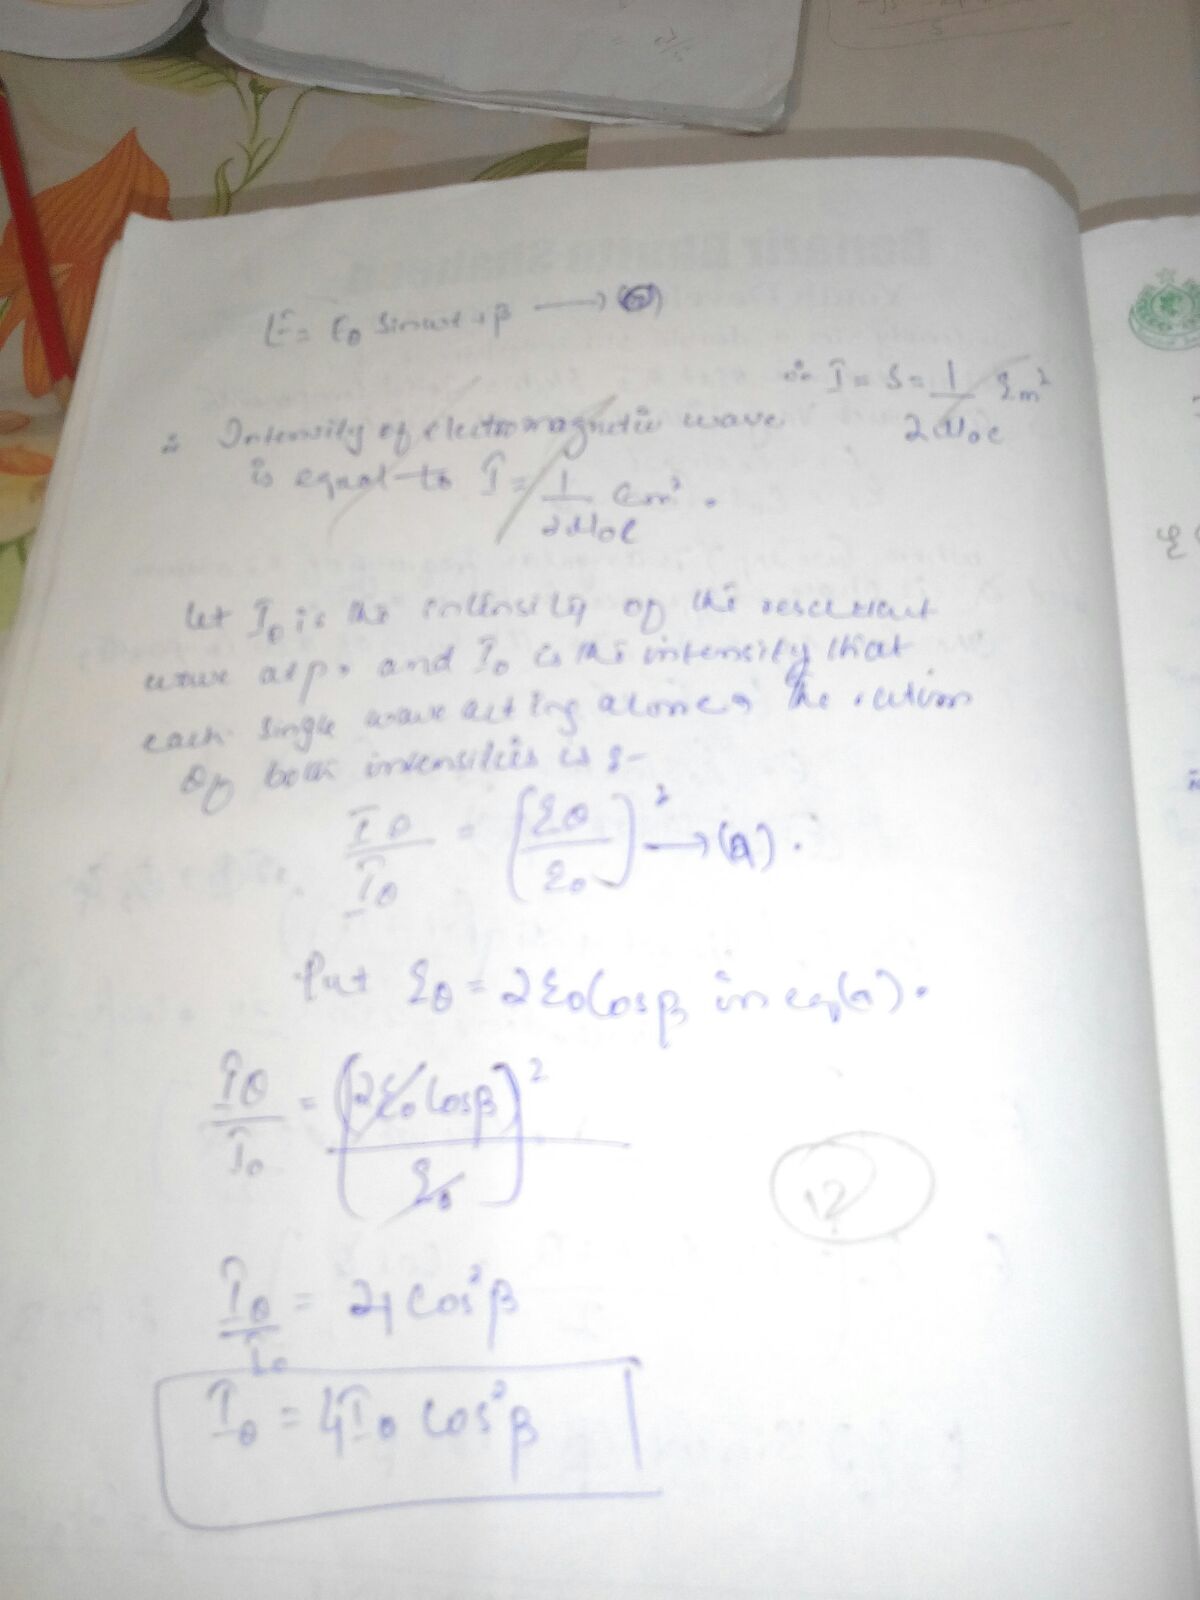 E = E₀ Sinωt + β ⟶ (
∴ I = S = 1/2μ₀c Em²
∴ Intensity of electromagnetic wave
is equal to I = 1/2μ₀c Em² .
let Iθ is the intensity of the
wave at p, and I₀ is the intensity that
each single wave acting alone, the
Of both intensities is :-
Iθ/Iθ = (Eθ/E₀)² ⟶ (a) .
Put Eθ = 2E₀Cosβ in eq(a) .
Iθ/I₀ = (2E₀Cosβ/E₀)²
12
Iθ/I₀ = 4 Cos²β
Iθ = 4I₀ Cos²β